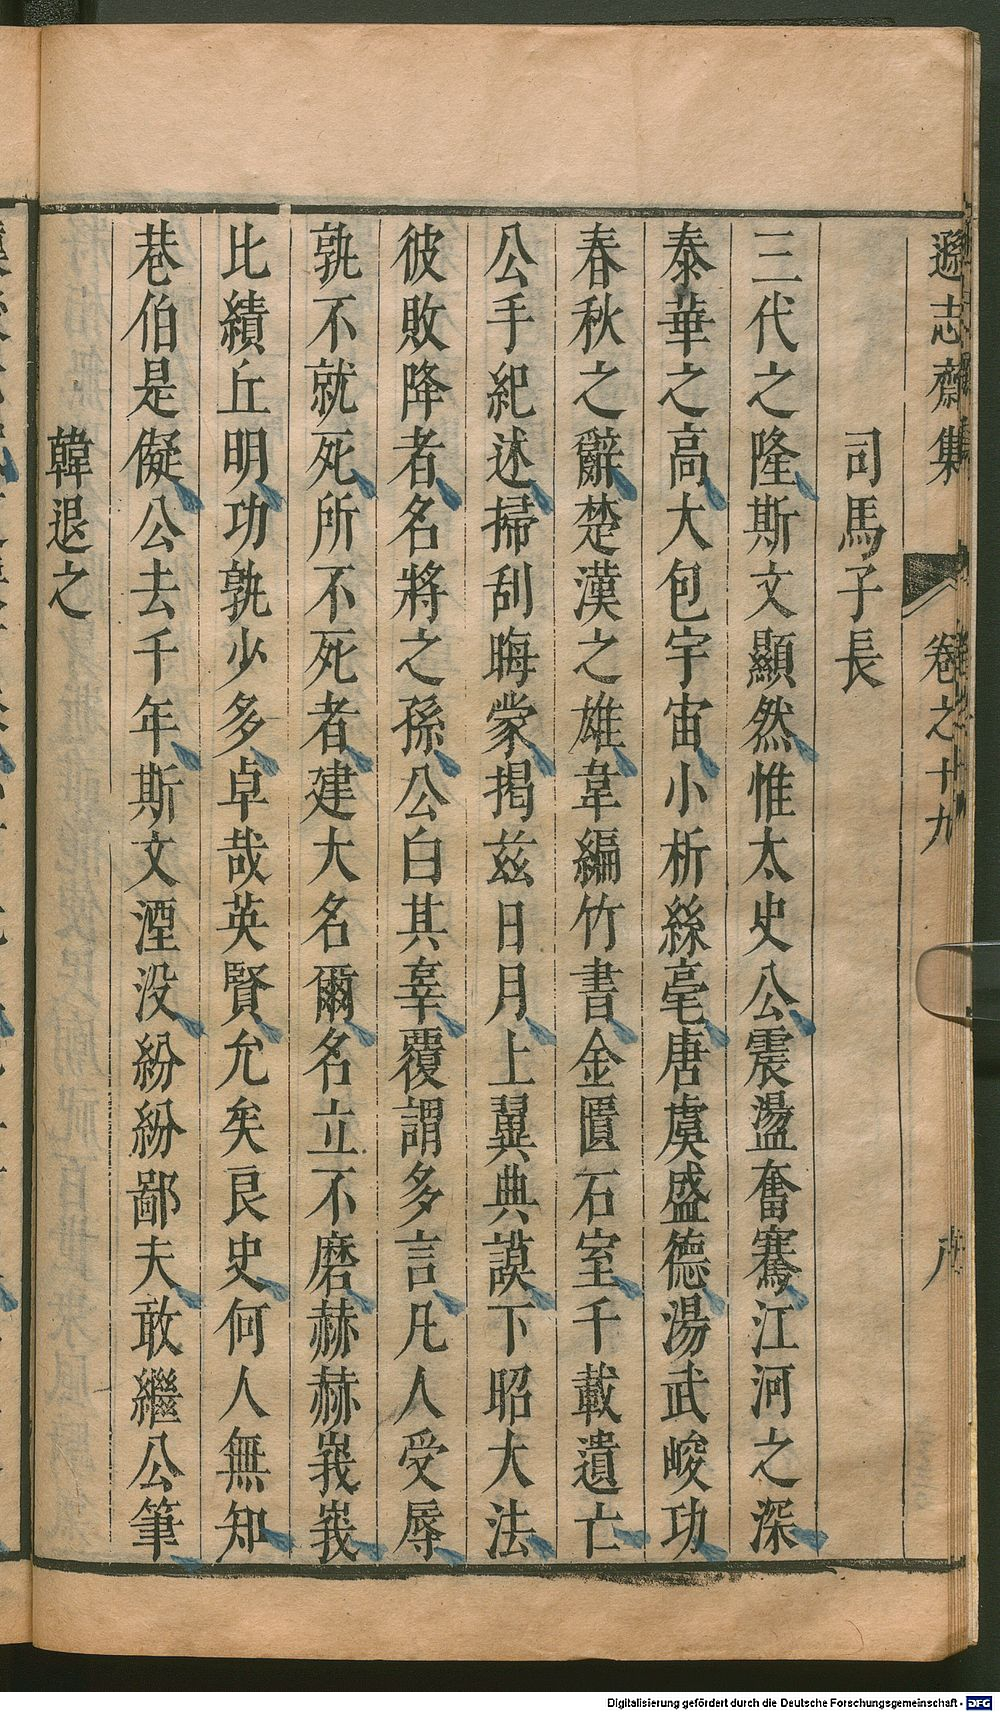 遜志齋集 卷之十九
司馬子長
三代之隆斯文顯然惟太史公震盪奮騫江河之深
泰華之高大包宇宙小析絲毫唐虞盛德湯武峻功
春秋之辭楚漢之雄韋編竹書金匱石室千載遺亡
公手紀述掃刮晦蒙揭茲日月上翼典謨下昭大法
彼敗降者名將之孫公白其辜覆謂多言凡人受辱
孰不就死所不死者建大名爾名立不磨赫赫峩峩
比績丘明功孰少多卓哉英賢允矣良史何人無知
巷伯是儗公去千年斯文湮没紛紛鄙夫敢繼公筆
韓退之
Digitalisierung gefördert durch die Deutsche Forschungsgemeinschaft - DFG